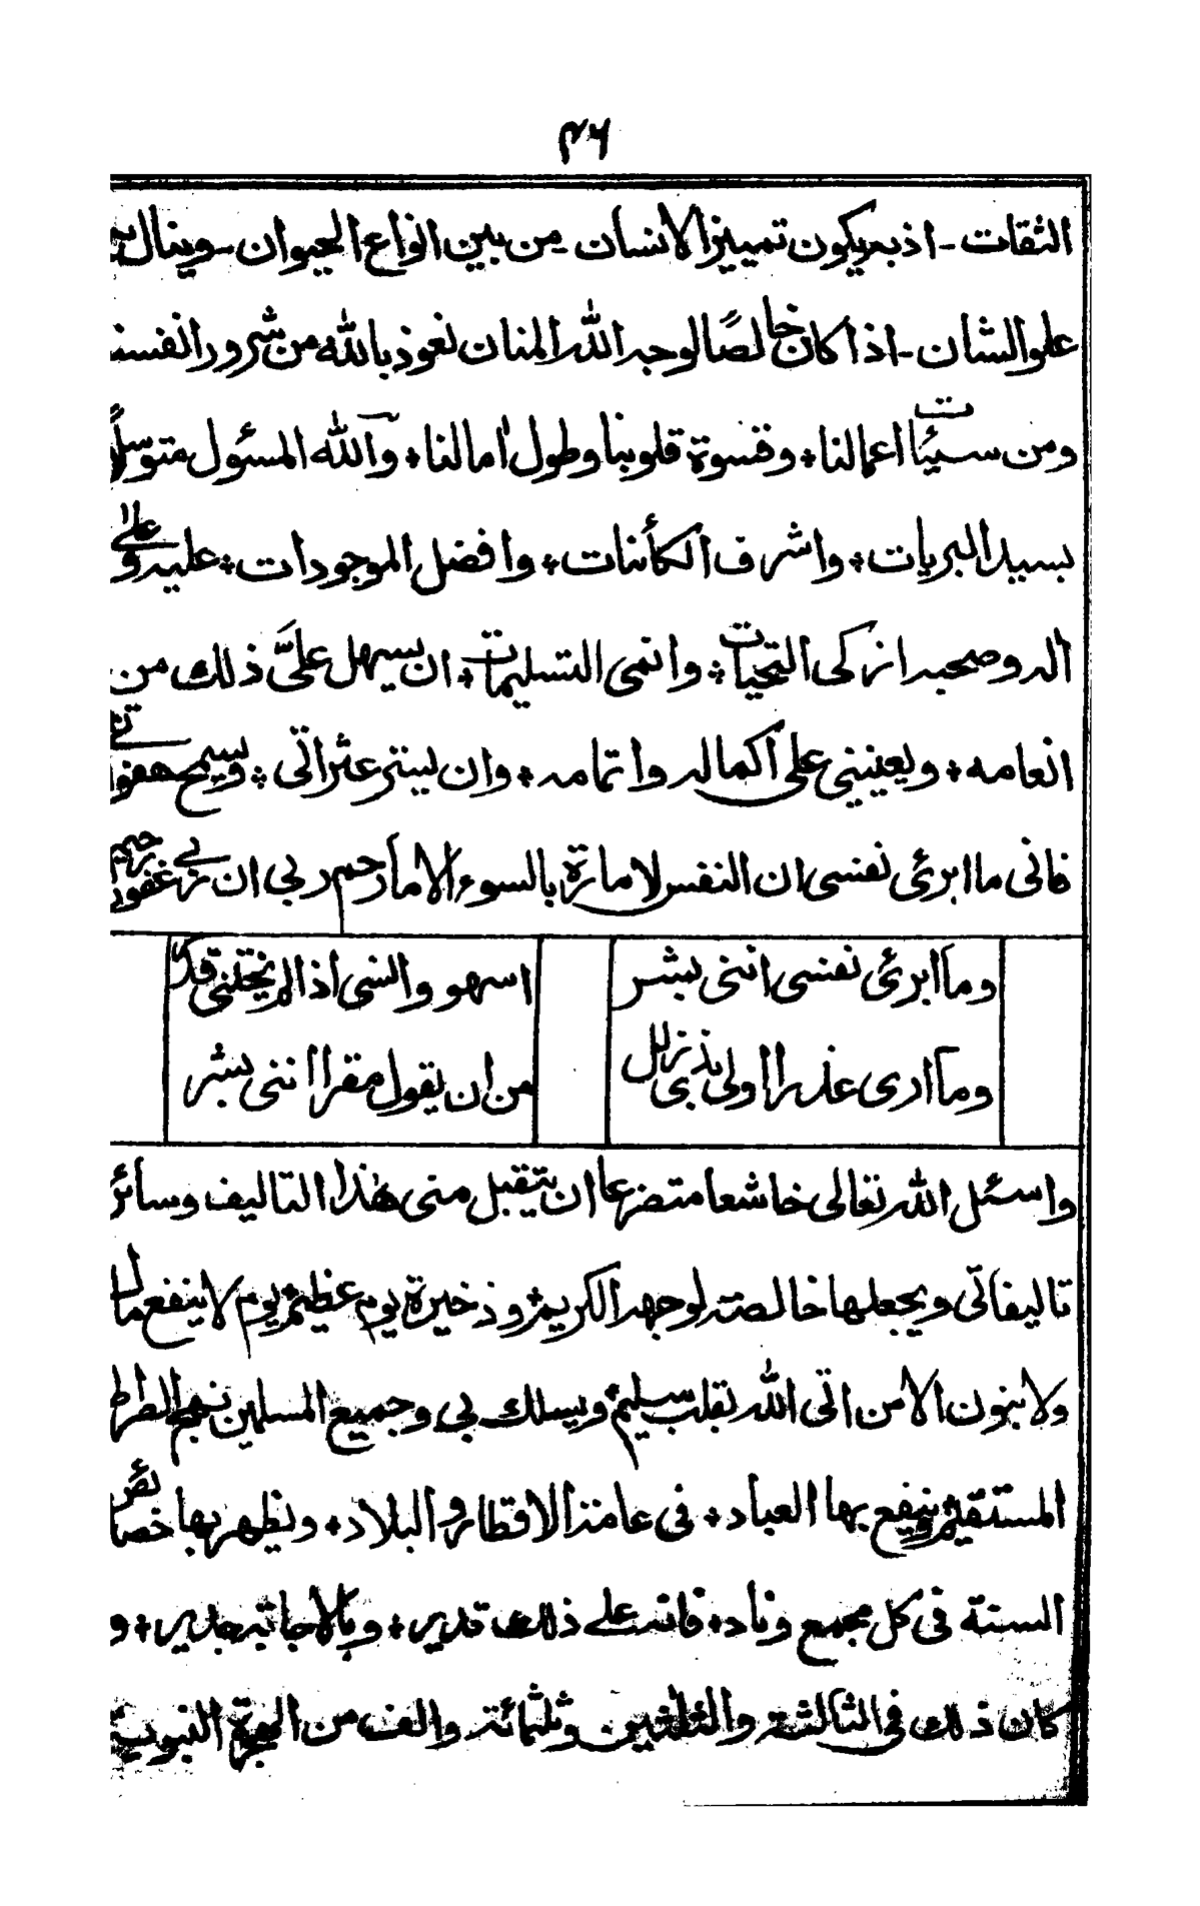 ٣٦
الثقات - اذ به يكون تمييز الانسان - من بين انواع الحيوان - وينال به
علو الشان - اذا كان خالصًا لوجه الله المنان نعوذ بالله من شرور انفسنا
ومن سيئات اعمالنا ٭ وقسوة قلوبنا وطول اٰمالنا ٭ واۤلله المسئول متوسلًا
بسيد البريات ٭ واشرف الكأنات ٭ وافضل الموجودات ٭ عليه وعلى
اله وصحبه ازكى التحيات ٭ وانمى التسليمات ٭ ان يسهل علىَّ ذلك من
انعامه ٭ ويعينني على اكماله واتمامه ٭ وان يستر عثراتى ٭ ويسمح هفواتى
فانى ما ابرئ نفسى ان النفس لامارة بالسوء الا ما رحم ربي ان ربي غفور رحيم
وما ابرئ نفسى اننى بشر اسهو وانسى اذا لم يختلنى قدر
وما ارى عذرا اولى بذى زلل من ان يقول مقرا اننى بشر
واسئل الله تعالى خاشعا متضرعا ان يتقبل منى هٰذا التاليف وسائر
تاليفاتى ويجعلها خالصة لوجهه الكريم ٭ وذخيرة يوم عظيم ٭ يوم لا ينفع مال
ولا بنون الا من اتى الله بقلب سليم ٭ ويسلك بي وجميع المسلمين نهج الصراط
المستقيم ٭ وينفع بها العباد ٭ فى عامة الاقطار والبلاد ٭ ويظهر بها خصائص
السنة فى كل مجمع وناد ٭ فانه على ذلك قدير ٭ وبالاجابة جدير ٭ و
كان ذلك فى الثالثة والثلثين وثلثمائة والف من الهجرة النبوية